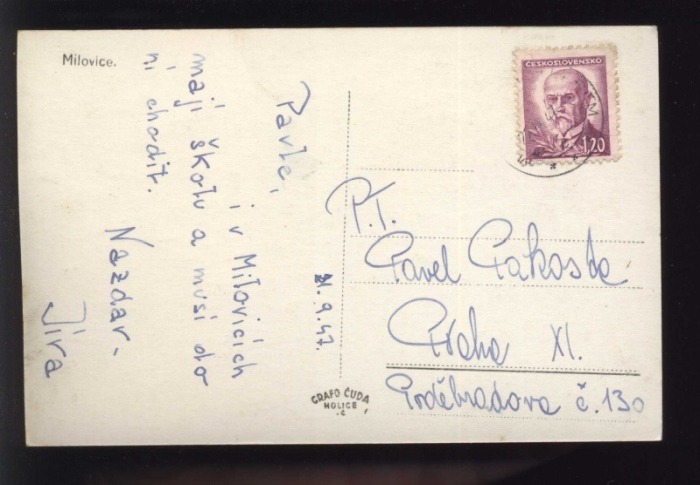 Milovice.
Pavle,
i v Milovicích
mají školu a musí do
ní chodit.
Nazdar-
Jíra
21.9.47.
GRAFO ČUDA
HOLICE
Č
ČESKOSLOVENSKO
1.20
P.T.
Pavel
Praha XI.
Poděbradova č. 130